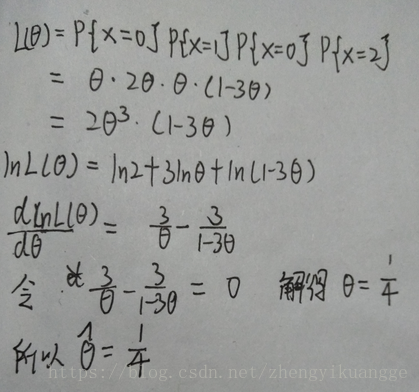 L(θ) = P{X=0} P{X=1} P{X=0} P{X=2}
= θ · 2θ · θ · (1-3θ)
= 2θ³ · (1-3θ)
lnL(θ) = ln2+3lnθ+ln(1-3θ)
dlnL(θ)/dθ = 3/θ - 3/(1-3θ)
令 3/θ - 3/(1-3θ) = 0 解得 θ = 1/4
所以 θ̂ = 1/4
https://blog.csdn.net/zhengyikuangge